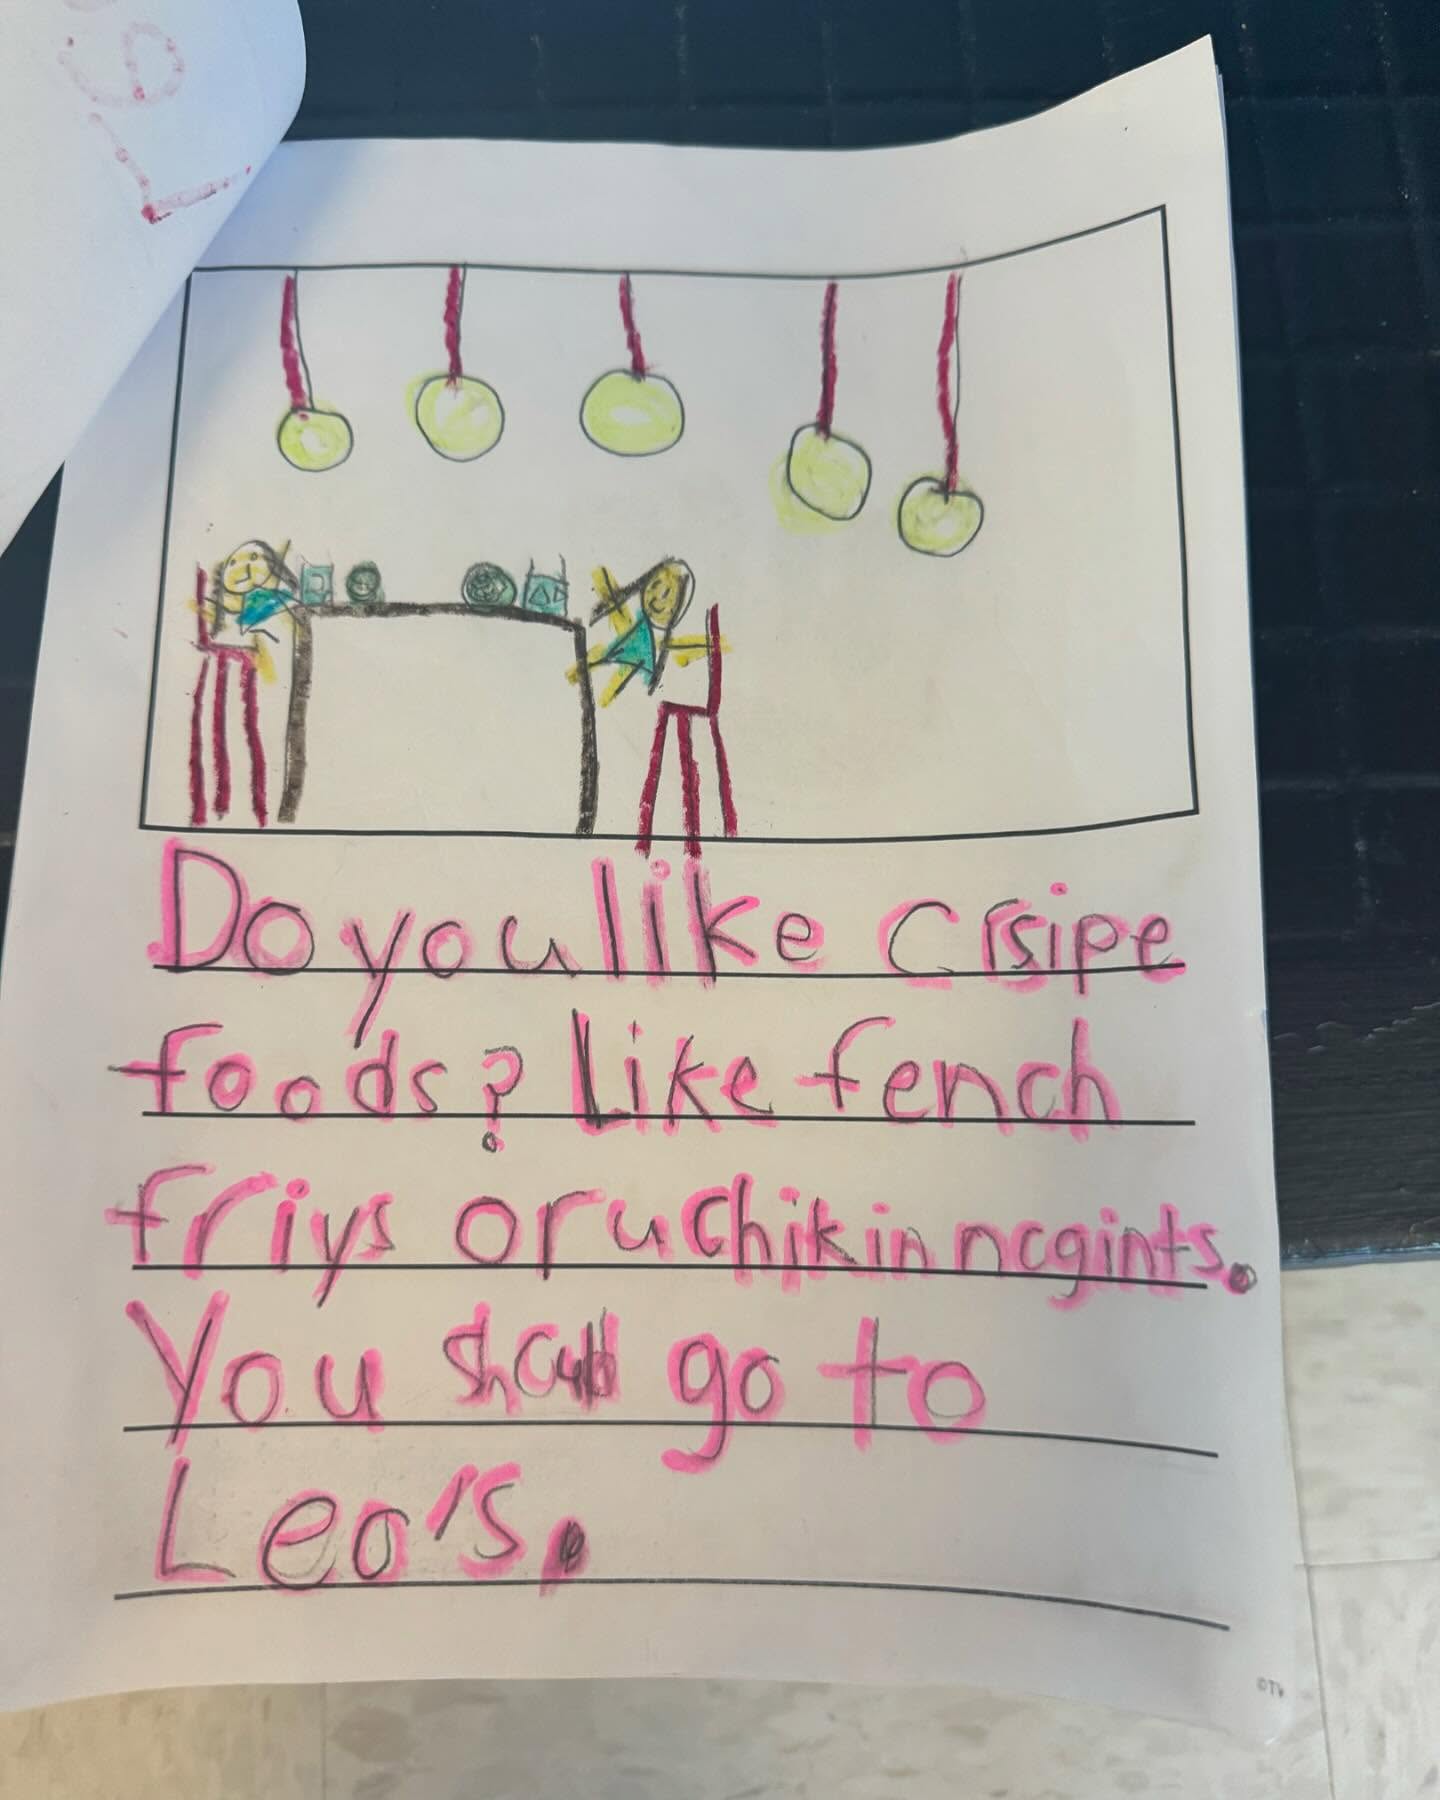 Do you like Crsipe
foods? Like fench
friys or u Chikin ncgints.
You should go to
Leo's.
©TV